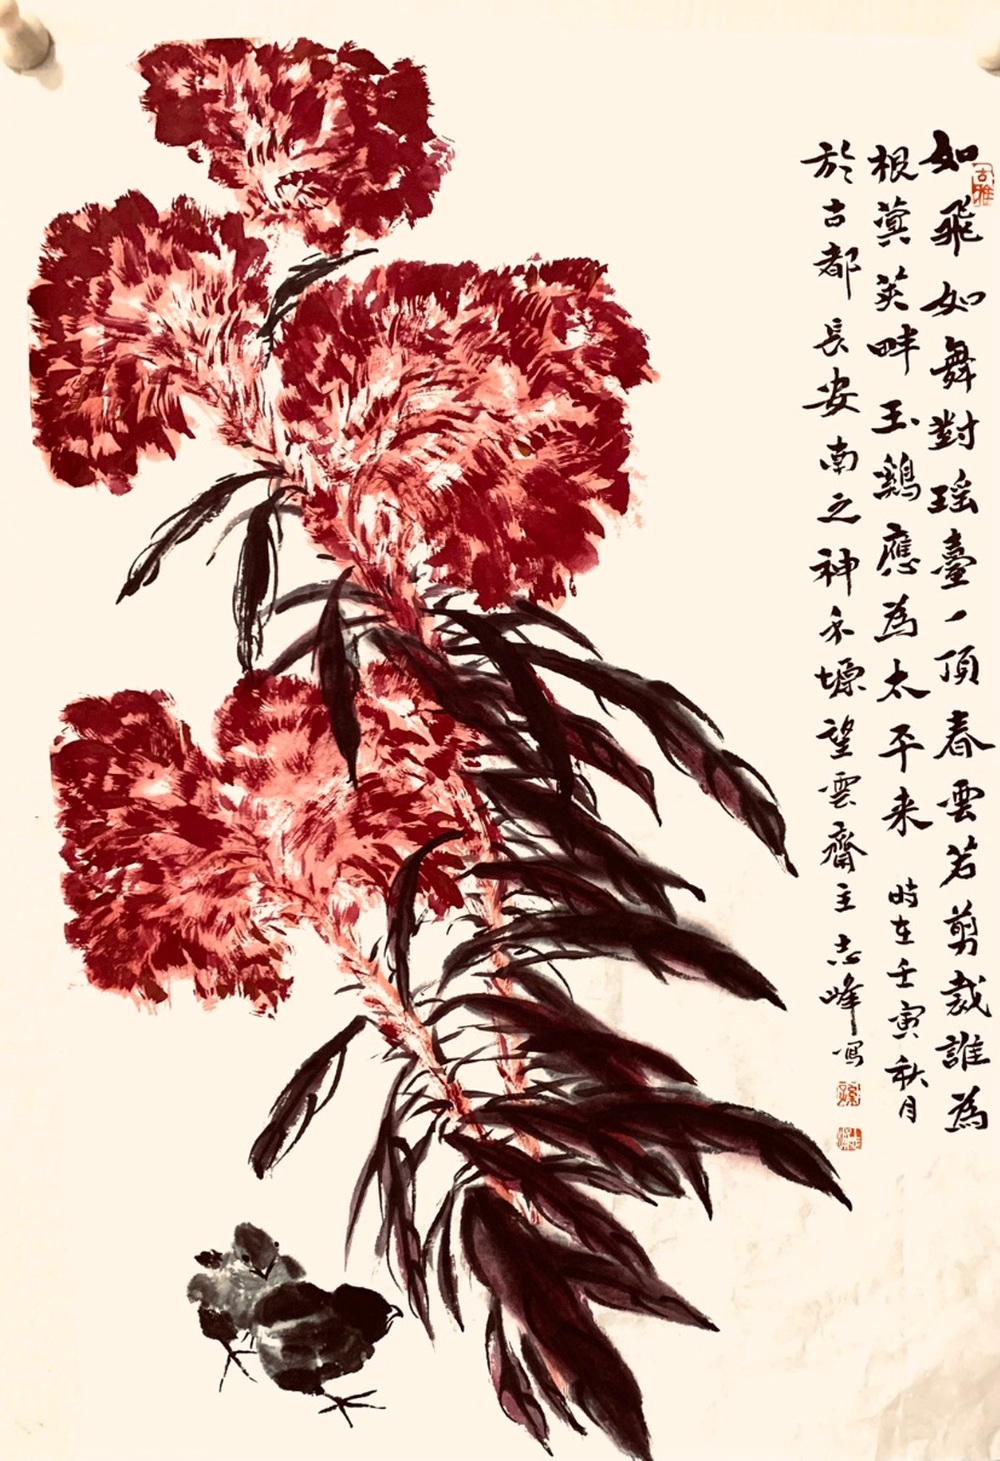 古雅
如飛如舞對瑶臺一頂春雲若剪裁誰為
根蓂莢畔玉鷄應為太平来 时在壬寅秋月
於古都長安南之神禾塬望雲齋主志峰寫